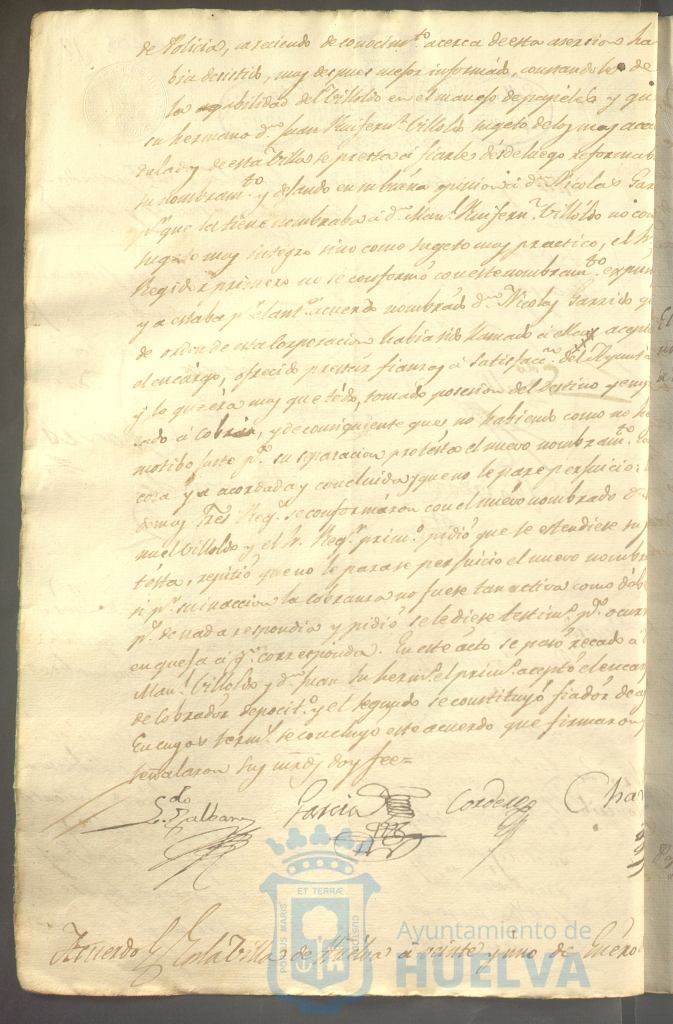 de Policia, careciendo de conocim.to acerca de esta asercion ha
bia desistido, mas despues mejor informado, constandole de
la apabilidad del Villoldo en el manejo de papeles y qu
su hermano d.n Juan Ruifern.z Villoldo sugeto delos mas acau
dalados de esta Villa se presta á fiarle desde luego reformab
su nombram.to y dejando en su buena opinion á d.n Nicolas Gar
p.r que la tiene nombraba á d.n Man.l Ruifern.z Villoldo no con
sugeto muy integro sino como sugeto muy practico, el S.r
Regidor primero no se conformó con este nombram.to expun
ya estaba p.r el ant.r acuerdo nombrado d.n Nicolas Garrido q
de orden de esta Corporacion habia sido llamado á ella acept
el encargo, ofrecido prestar fianzas á satisfacc.n del Ayunta
y lo que era mas que todo, tomado posesion del destino y emp
zado á cobrar, y de consiguiente que no habiendo como no ha
motibo justo p.a su separacion protesta el nuevo nombram.to
cosa ya acordada y concluida y que no le pare perjuicio:
demas Sres Reg.s se conformaron con el nuevo nombrado d.n
nuel Villoldo y el S.r Reg.r prim.o pidió que se estendiese su
testa, repitió que no le parase perjuicio el nuevo nombra
si p.r su inaccion la cobranza no fuese tan activa como deb
p.r de nada respondia y pidió se le diese testim.o p.a ocurr
en queja á q.n corresponda. En este acto se pasó recado á
Man.l Villoldo y d.n Juan su herm.o el prim.o aceptó el encar
de Cobrador deposit.o y el segundo se constituyó fiador de a
En cuyos term.s se concluyó este acuerdo que firmaron y
señalaron sus mrds doy fee=
L.do Balban Garcia Cordero Cha
Acuerdo En la Villa de Huelva á veinte y uno de Enero
PORTUS MARIS ET TERRÆ CUSTODIA
Ayuntamiento de
HUELVA